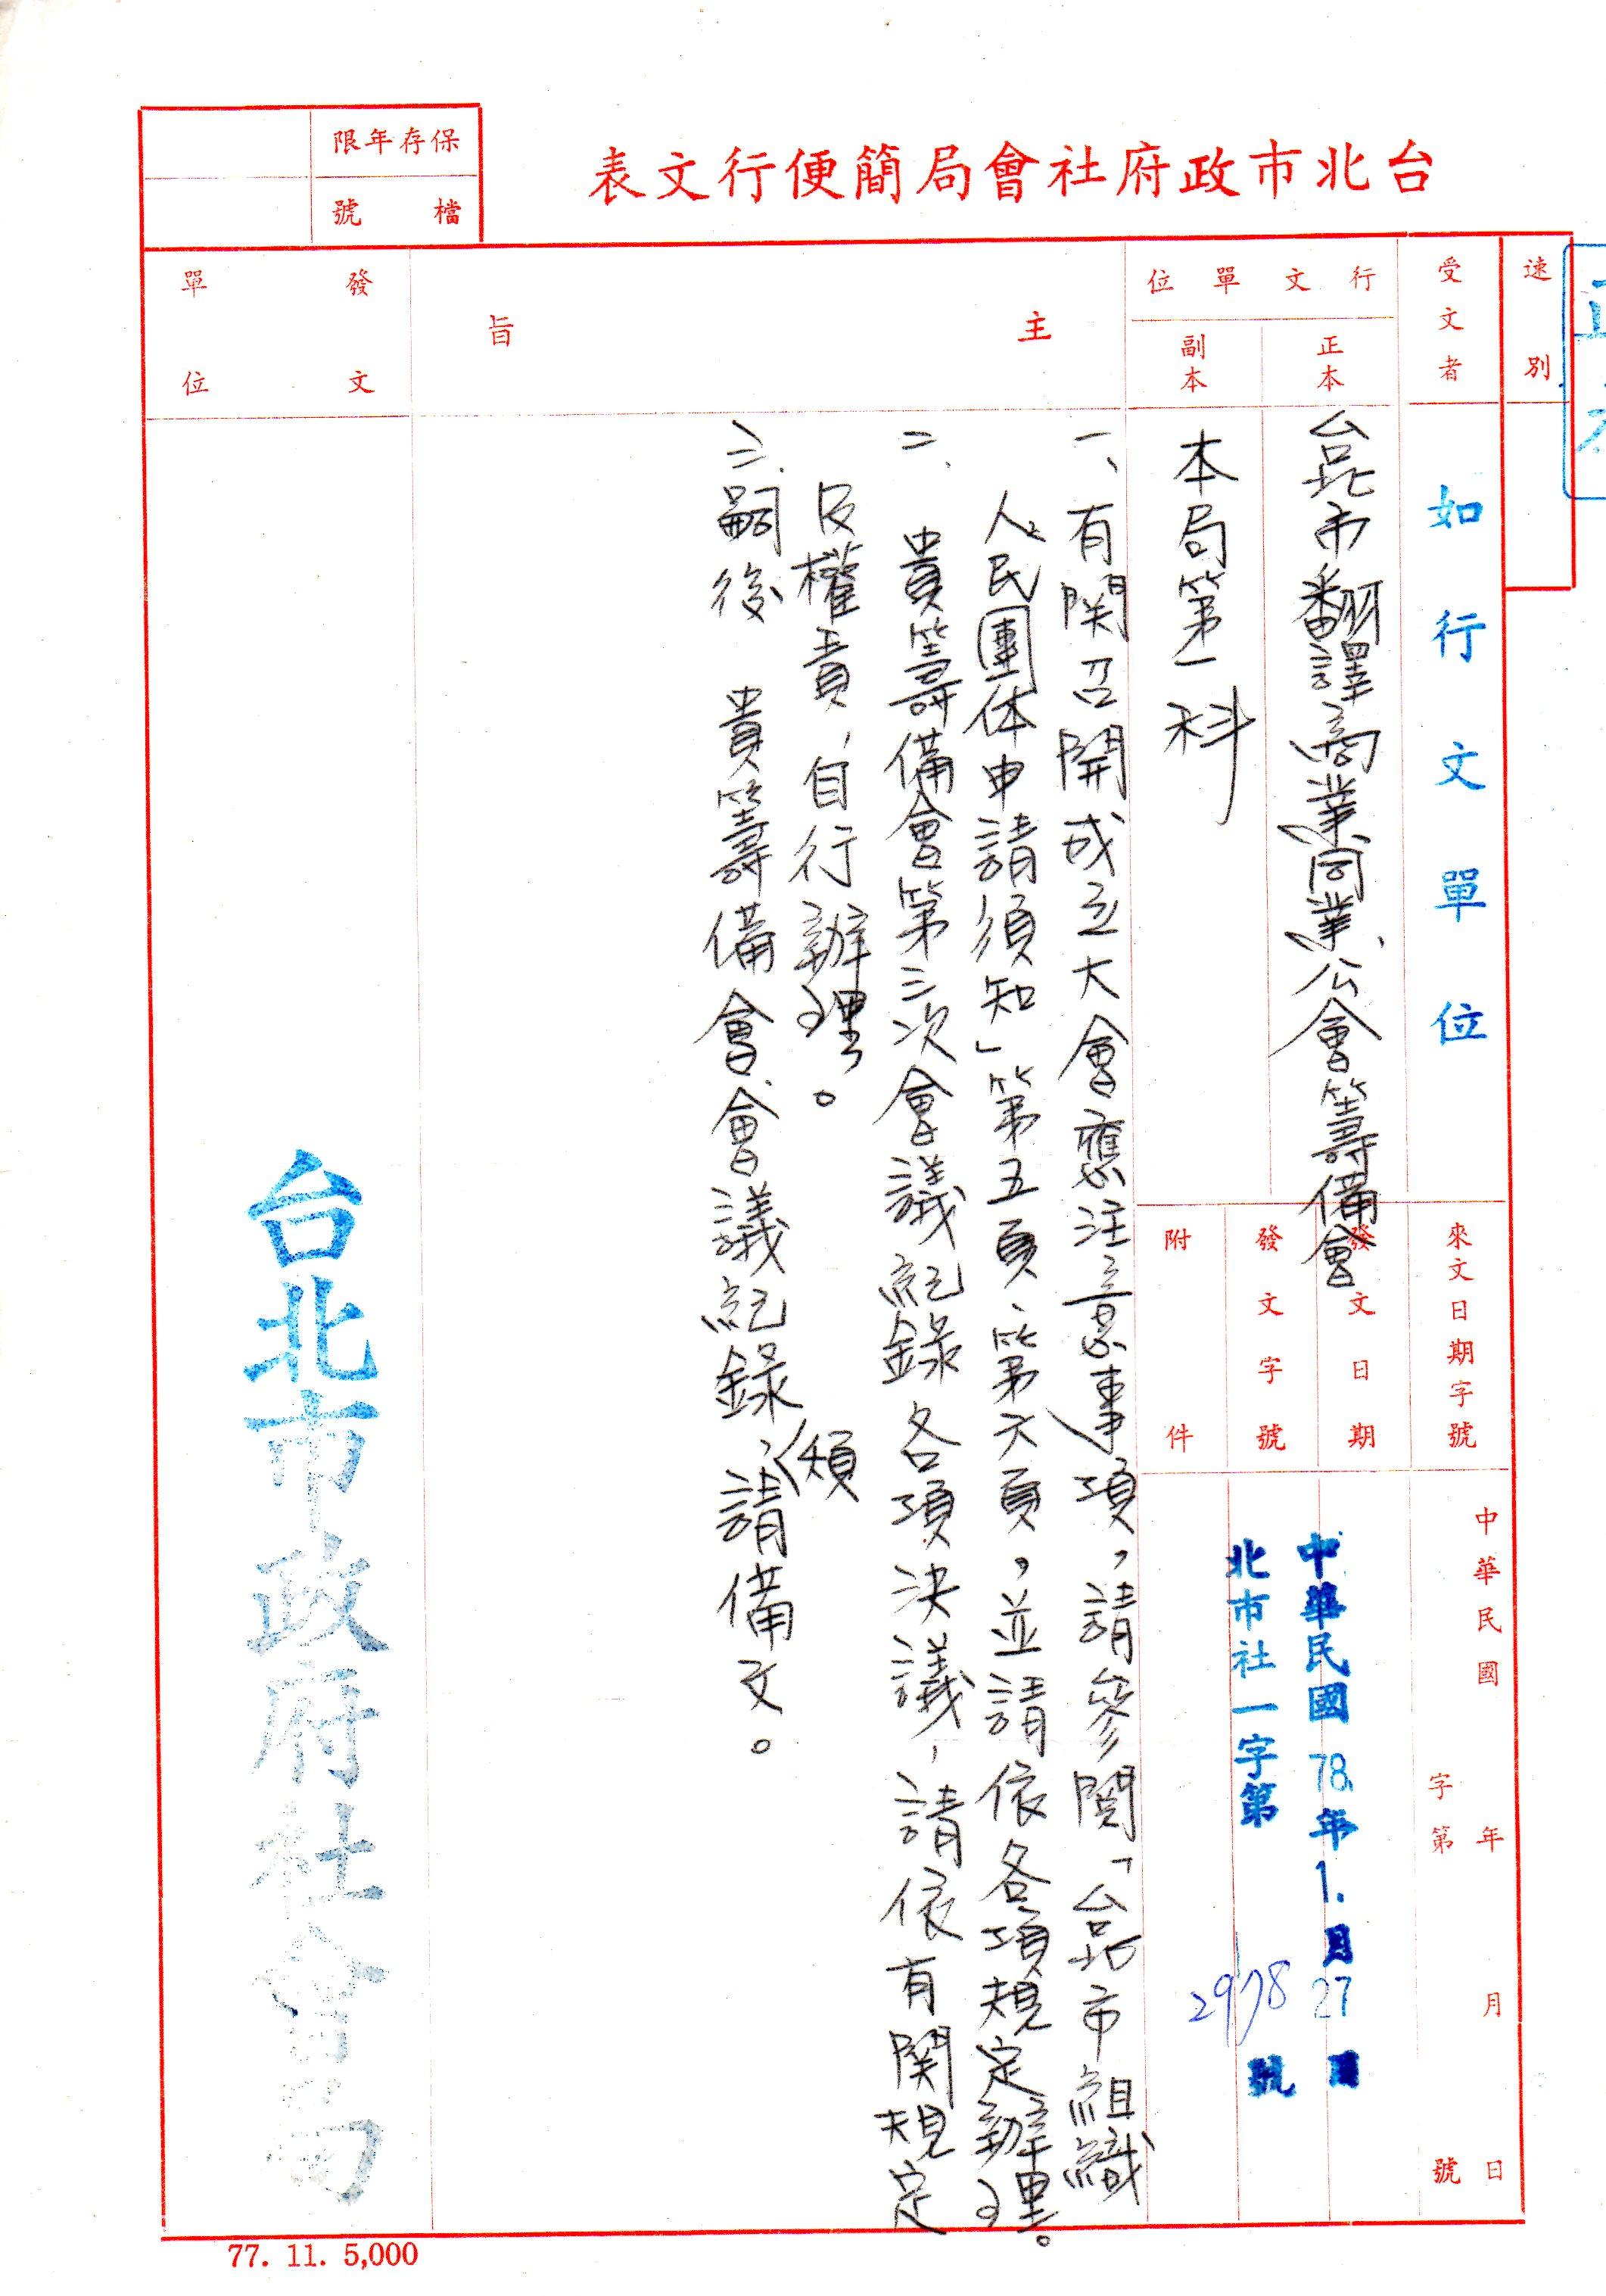 台北市政府社會局簡便行文表
保存年限
檔號
速別
受文者
如行文單位
行文單位
正本
台北市翻譯商業同業公會籌備會
副本
本局第一科
來文日期字號
中華民國 年 月 日
字第 號
發文日期
中華民國78年1.月27日
發文字號
北市社一字第2978號
附件
主旨
一、有関召開成立大會應注意事項，請參閱「台北市組織
人民團体申請須知」第五頁、第六頁，並請依各項規定辦理。
二、貴籌備會第三次會議紀錄各項決議，請依有関規定
及權責，自行辦理。
三.嗣後 貴籌備會會議紀錄，須請備文。
發文單位
台北市政府社會局
77. 11. 5,000